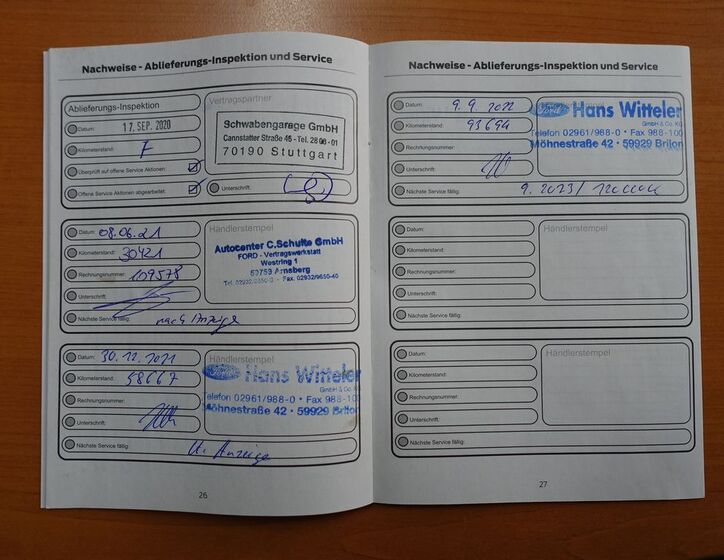 Nachweise - Ablieferungs-Inspektion und Service
Ablieferungs-Inspektion
Vertragspartner
Datum: 17. SEP. 2020
Kilometerstand: 7
Überprüft auf offene Service Aktionen:
Offene Service Aktionen abgearbeitet:
Schwabengarage GmbH
Cannstatter Straße 46 - Tel. 28 08-01
70190 Stuttgart
Unterschrift:
Datum: 08.06.21
Kilometerstand: 30421
Rechnungsnummer: 109578
Unterschrift:
Nächste Service fällig: nach Anzeige
Händlerstempel
Autocenter C.Schulte GmbH
FORD - Vertragswerkstatt
Westring 1
59759 Arnsberg
Tel. 02932/9650-0 - Fax: 02932/9650-40
Datum: 30.12.2021
Kilometerstand: 58667
Rechnungsnummer:
Unterschrift:
Nächste Service fällig: n. Anzeige
Händlerstempel
Ford Hans Witteler
GmbH & Co. KG
Telefon 02961/988-0 • Fax 988-100
Möhnestraße 42 • 59929 Brilon
26
Nachweise - Ablieferungs-Inspektion und Service
Datum: 9.9.2022
Kilometerstand: 93694
Rechnungsnummer:
Unterschrift:
Nächste Service fällig: 9.2023/120000
Ford Hans Witteler
GmbH & Co. KG
Telefon 02961/988-0 • Fax 988-100
Möhnestraße 42 • 59929 Brilon
Datum:
Kilometerstand:
Rechnungsnummer:
Unterschrift:
Nächste Service fällig:
Händlerstempel
Datum:
Kilometerstand:
Rechnungsnummer:
Unterschrift:
Nächste Service fällig:
Händlerstempel
27